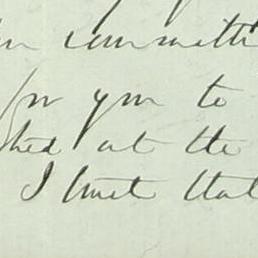 committ
for you to
shed at the
I trust that